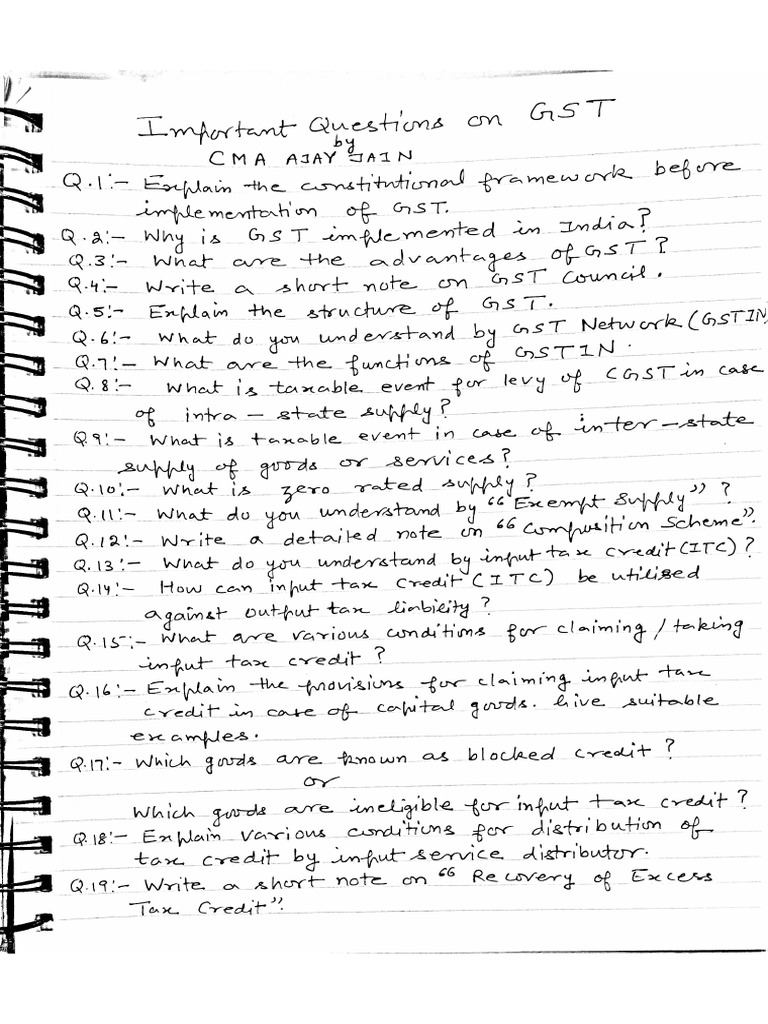 Important Questions on GST
by
CMA AJAY JAIN
Q.1:- Explain the constitutional framework before
implementation of GST.
Q.2:- Why is GST implemented in India?
Q.3:- What are the advantages of GST?
Q.4:- Write a short note on GST Council.
Q.5:- Explain the structure of GST.
Q.6:- What do you understand by GST Network (GSTIN)
Q.7:- What are the functions of GSTIN.
Q.8:- What is taxable event for levy of CGST in case
of intra-state supply?
Q.9:- What is taxable event in case of inter-state
supply of goods or services?
Q.10:- What is zero rated supply?
Q.11:- What do you understand by "Exempt Supply"?
Q.12:- Write a detailed note on "Composition Scheme".
Q.13:- What do you understand by input tax credit (ITC)?
Q.14:- How can input tax credit (ITC) be utilised
against output tax liability?
Q.15:- What are various conditions for claiming/taking
input tax credit?
Q.16:- Explain the provisions for claiming input tax
credit in case of capital goods. Give suitable
examples.
Q.17:- Which goods are known as blocked credit?
or
Which goods are ineligible for input tax credit?
Q.18:- Explain various conditions for distribution of
tax credit by input service distributor.
Q.19:- Write a short note on "Recovery of Excess
Tax Credit".